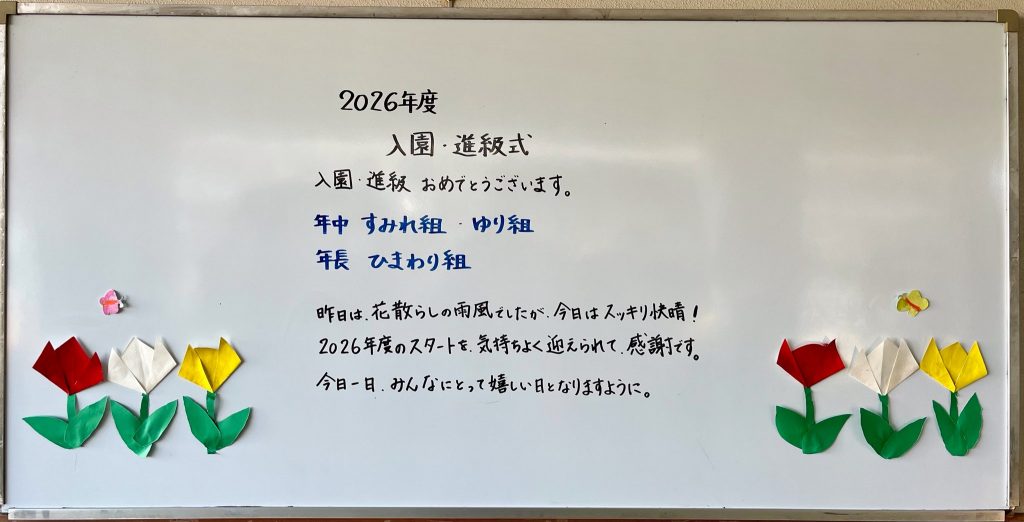 2026年度
入園・進級式
入園・進級 おめでとうございます。
年中 すみれ組 ・ ゆり組
年長 ひまわり組
昨日は、花散らしの雨風でしたが、今日はスッキリ快晴！
2026年度のスタートを、気持ちよく迎えられて、感謝です。
今日一日、みんなにとって嬉しい日となりますように。